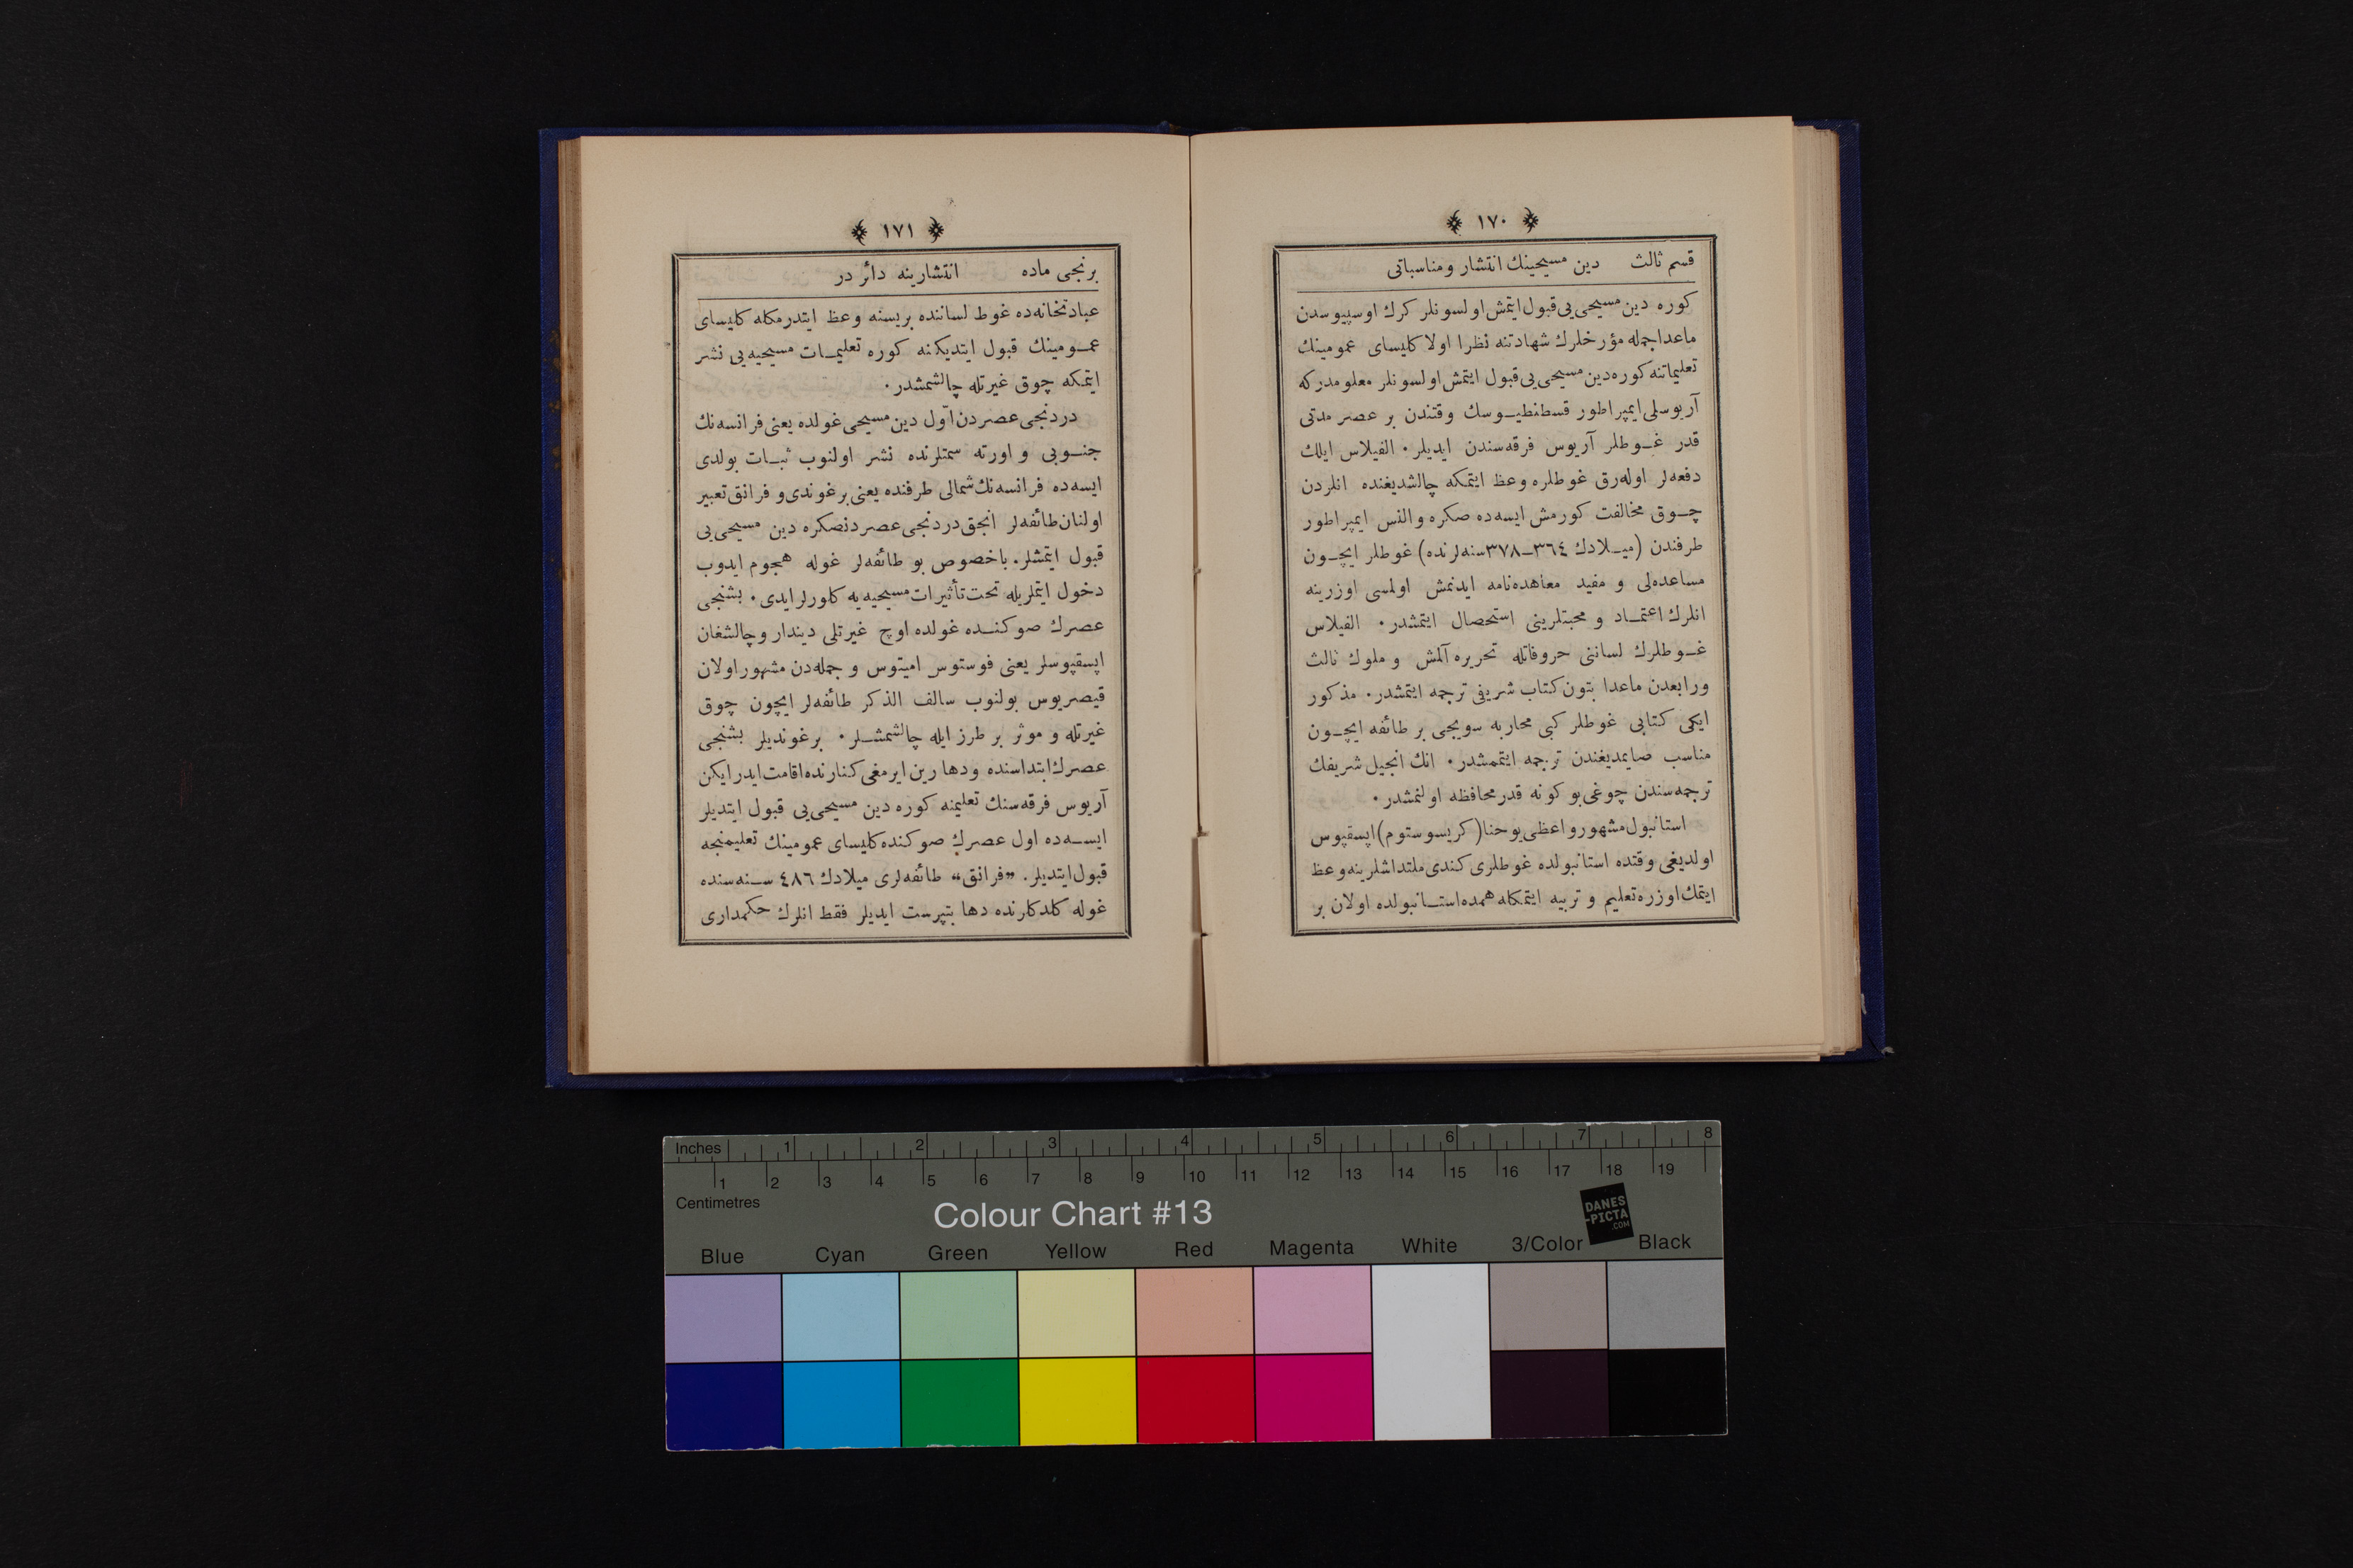 ١٧٠
قسم ثالث دین مسیحینك انتشار ومناسباتی
كوره دین مسیحی یی قبول ایتمش اولسونلر كرك اوسبیوسدن
ماعدا جمله مؤرخلرك شهادتنه نظرا اولا كلیسای عمومینك
تعلیماتنه كوره دین مسیحی یی قبول ایتمش اولسونلر معلومدركه
آریوسلی ایمپراطور قسطنطیـوسك وقتندن بر عصر مدتی
قدر غـوطلر آریوس فرقه سندن ایدیلر· الفیلاس ایلك
دفعه لر اوله رق غوطلره وعظ ایتمكه چالشدیغنده انلردن
چـوق مخالفت كورمش ایسه ده صكره والنس ایمپراطور
طرفندن (میـلادك ٣٦٤ــ٣٧٨سنه لرنده) غوطلر ایچـون
مساعده لی و مفید معاهده نامه ایدنمش اولمسی اوزرینه
انلرك اعتمـاد و محبتلرینی استحصال ایتمشدر· الفیلاس
غـوطلرك لساننی حروفاتله تحریره آلمش و ملوك ثالث
ورابعدن ماعدا بتون كتاب شریفی ترجمه ایتمشدر· مذكور
ایكی كتابی غوطلر كبی محاربه سویجی بر طائفه ایچـون
مناسب صایمدیغندن ترجمه ایتممشدر· انك انجیل شریفك
ترجمه سندن چوغی بو كونه قدر محافظه اولنمشدر·
استانبول مشهور واعظی یوحنا (كریسوستوم) اپسقپوس
اولدیغی وقتده استانبولده غوطلری كندی ملتداشلرینه وعظ
ایتمك اوزره تعلیم و تربیه ایتمكله همده استـانبولده اولان بر
١٧١
برنجی ماده انتشارینه دائر در
عبادتخانه ده غوط لساننده بریسنه وعظ ایتدرمكله كلیسای
عمـومینك قبول ایتدیكنه كوره تعلیمـات مسیحیه یی نشر
ایتمكه چوق غیرتله چالشمشدر·
دردنجی عصردن اوّل دین مسیحی غولده یعنی فرانسه نك
جنـوبی و اورته سمتلرنده نشر اولنوب ثبـات بولدی
ایسه ده فرانسه نك شمالی طرفنده یعنی برغوندی و فرانق تعبیر
اولنان طائفه لر انجق دردنجی عصردنصكره دین مسیحی یی
قبول ایتمشلر. باخصوص بو طائفه لر غوله هجوم ایدوب
دخول ایتملریله تحت تأثیرات مسیحیه یه كلورلر ایدی· بشنجی
عصرك صوكنـده غولده اوچ غیرتلی دیندار وچالشغان
اپسقپوسلر یعنی فوستوس امیتوس و جمله دن مشهور اولان
قیصریوس بولنوب سالف الذكر طائفه لر ایچون چوق
غیرتله و موثر بر طرز ایله چالشمشـلر· برغوندیلر بشنجی
عصرك ابتداسنده ودها رین ایرمغی كنارنده اقامت ایدر ایكن
آریوس فرقه سنك تعلیمنه كوره دین مسیحی یی قبول ایتدیلر
ایسـه ده اول عصرك صوكنده كلیسای عمومینك تعلیمنجه
قبول ایتدیلر. „فرانق“ طائفه لری میلادك ٤٨٦ سـنه سنده
غوله كلدكلرنده دها بتپرست ایدیلر فقط انلرك حكمداری
Inches 1 2 3 4 5 6 7 8
1 2 3 4 5 6 7 8 9 10 11 12 13 14 15 16 17 18 19
Centimetres
Colour Chart #13
DANES
-PICTA
.COM
Blue Cyan Green Yellow Red Magenta White 3/Color Black